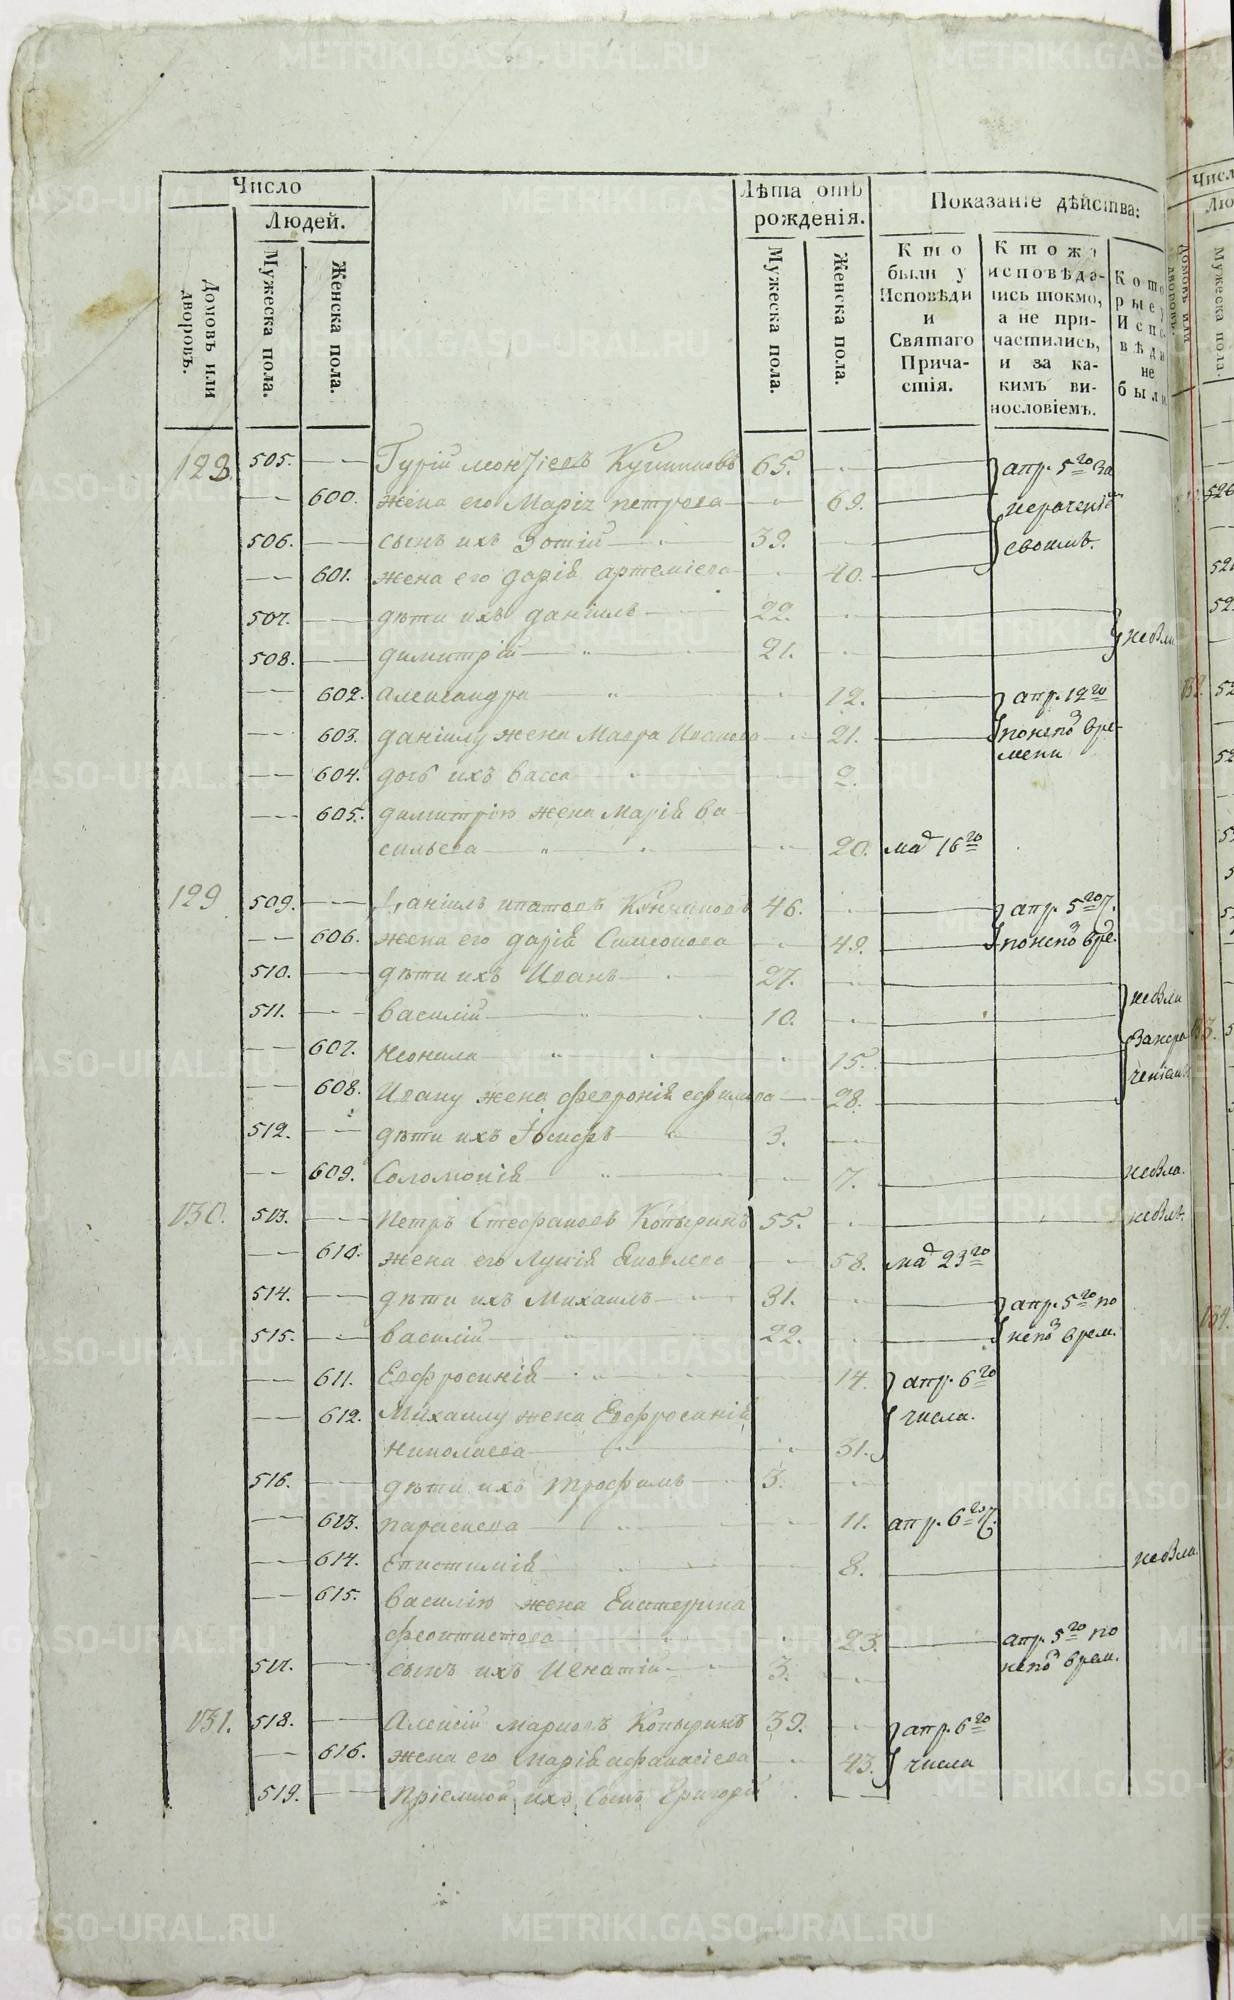 Число
Людей.
Домовъ или дворовъ.
Мужеска пола.
Женска пола.
Лѣта отъ рожденія.
Мужеска пола.
Женска пола.
Показаніе дѣйства:
Кто были у Исповѣди и Святаго Причастія.
Кто же исповѣдались токмо, а не причастились, и за какимъ винословіемъ.
Которые у Исповѣди не были
128. 505. Гурій 65. апр. 5го за
600. жена его Марія петрова 69. нерачені
506. сынъ ихъ Зотій 39. своимъ.
601. жена его дарія артеміева 40.
507. дѣти ихъ даніилъ 22.
508. димитрій 21.
602. александра 12. апр. 12го
603. даніилу жена Мавра Иванова 21. вре-
604. дочь ихъ васса 2. мени
605. димитрію жена Марія ва
сильева 20. маія 16го
129. 509. Даніилъ ипатовъ 46. апр. 5го
606. жена его дарія Симеонова 49.
510. дѣти ихъ Иванъ 27.
511. василій 10.
607. неонила 15.
608. Ивану жена февронія ефимова 28.
512. дѣти ихъ Іосифъ 3.
609. Соломонія 7.
130. 513. Петръ Стефановъ Копыринъ 55.
610. жена его Лукія Яковлева 58. маія 23го
514. дѣти ихъ Михаилъ 31. апр. 5го по
515. василій 22. врем.
611. Евфросинія 14. апр. 6го
612. Михаилу жена Евфросинія числа.
николаева 31.
516. дѣти ихъ трофимъ 3.
613. параскева 11. апр. 6го
614. епистимія 8.
615. василію жена Екатерина
феоктистова 23. апр. 5го по
517. сынъ ихъ Игнатій 3. врем.
131. 518. Алексій марковъ Копыринъ 39. апр. 6го
616. жена его марія афанасіева 43. числа
519. Пріемной ихъ сынъ Григорій
METRIKI.GASO-URAL.RU